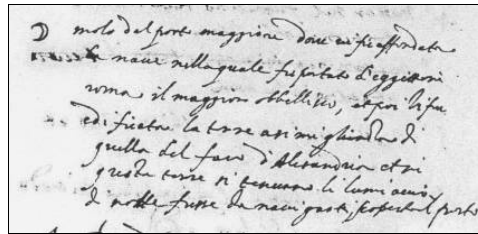 D molo del porto maggiore dove vi fu affondata
la nave nella quale fu portato d'eggitto in
roma il maggior obbellisco, et poi vi fu
edificata la torre asimiglianza di
quella del faro d'Alesandria et in
questa torre si tenevano li lumi acciò
di notte fusse da naviganti scoperto il porto